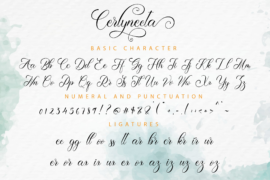 Certyneeta
BASIC CHARACTER
Aa Bb Cc Dd Ee Ff Gg Hh Ii Jj Kk Ll Mm
Nn Oo Pp Qq Rr Ss Tt Uu Vv Ww Xx Yy Zz
NUMERAL AND PUNCTUATION
LIGATURES
ee gg ll oo ss tt ar br er kr ir ur
er or av in ur ev ov az iz yz ez oz